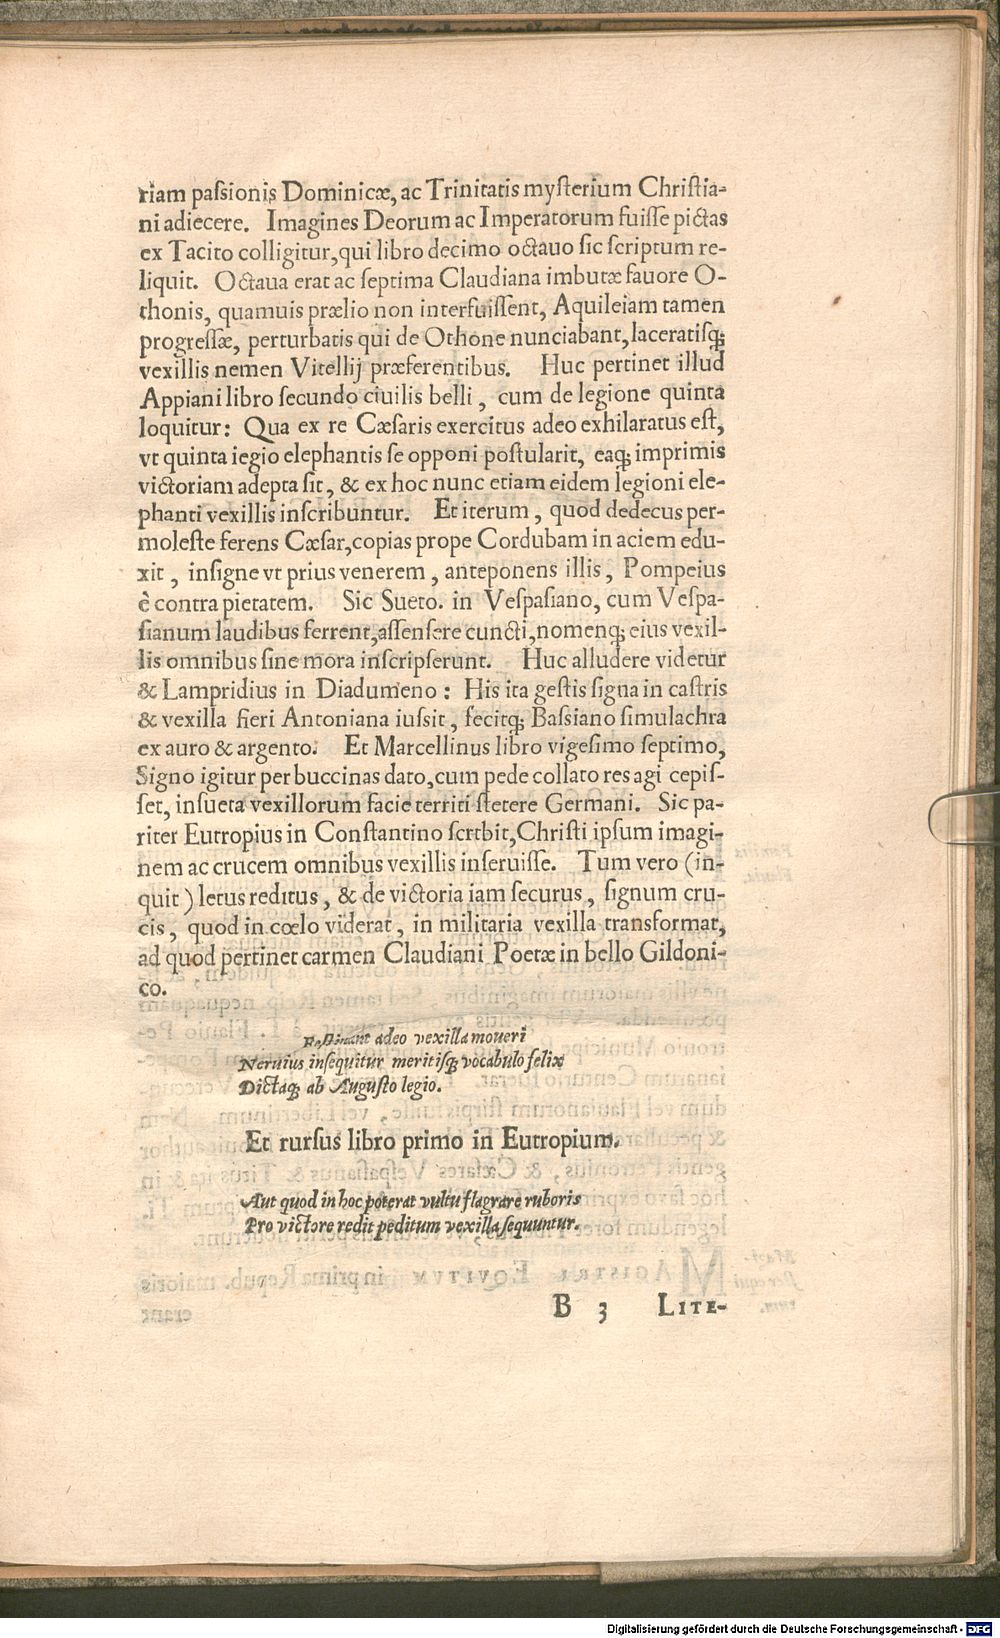 riam passionis Dominicæ, ac Trinitatis mysterium Christia-
ni adiecere. Imagines Deorum ac Imperatorum fuisse pictas
ex Tacito colligitur, qui libro decimo octauo sic scriptum re-
liquit. Octaua erat ac septima Claudiana imbutæ fauore O-
thonis, quamuis prælio non interfuissent, Aquileiam tamen
progressæ, perturbatis qui de Othone nunciabant, laceratisq;
vexillis nemen Vitellij præferentibus. Huc pertinet illud
Appiani libro secundo ciuilis belli, cum de legione quinta
loquitur: Qua ex re Cæsaris exercitus adeo exhilaratus est,
vt quinta iegio elephantis se opponi postularit, eaq; imprimis
victoriam adepta sit, & ex hoc nunc etiam eidem legioni ele-
phanti vexillis inscribuntur. Et iterum, quod dedecus per-
moleste ferens Cæsar, copias prope Cordubam in aciem edu-
xit, insigne vt prius venerem, anteponens illis, Pompeius
è contra pietatem. Sic Sueto. in Vespasiano, cum Vespa-
sianum laudibus ferrent, assensere cuncti, nomenq; eius vexil-
lis omnibus sine mora inscripserunt. Huc alludere videtur
& Lampridius in Diadumeno: His ita gestis signa in castris
& vexilla fieri Antoniana iussit, fecitq; Bassiano simulachra
ex auro & argento. Et Marcellinus libro vigesimo septimo,
Signo igitur per buccinas dato, cum pede collato res agi cepis-
set, insueta vexillorum facie territi stetere Germani. Sic pa-
riter Eutropius in Constantino scrtbit, Christi ipsum imagi-
nem ac crucem omnibus vexillis inseruisse. Tum vero (in-
quit) letus reditus, & de victoria iam securus, signum cru-
cis, quod in cœlo viderat, in militaria vexilla transformat,
ad quod pertinet carmen Claudiani Poetæ in bello Gildoni-
co.
Festinant adeo vexilla moueri
Neruius insequitur meritisq; vocabulo felix
Dictaq; ab Augusto legio.
Et rursus libro primo in Eutropium.
Aut quod in hoc poterat vultu flagrare ruboris
Pro victore redit peditum vexilla sequuntur.
B 3 LITE-
Digitalisierung gefördert durch die Deutsche Forschungsgemeinschaft - DFG